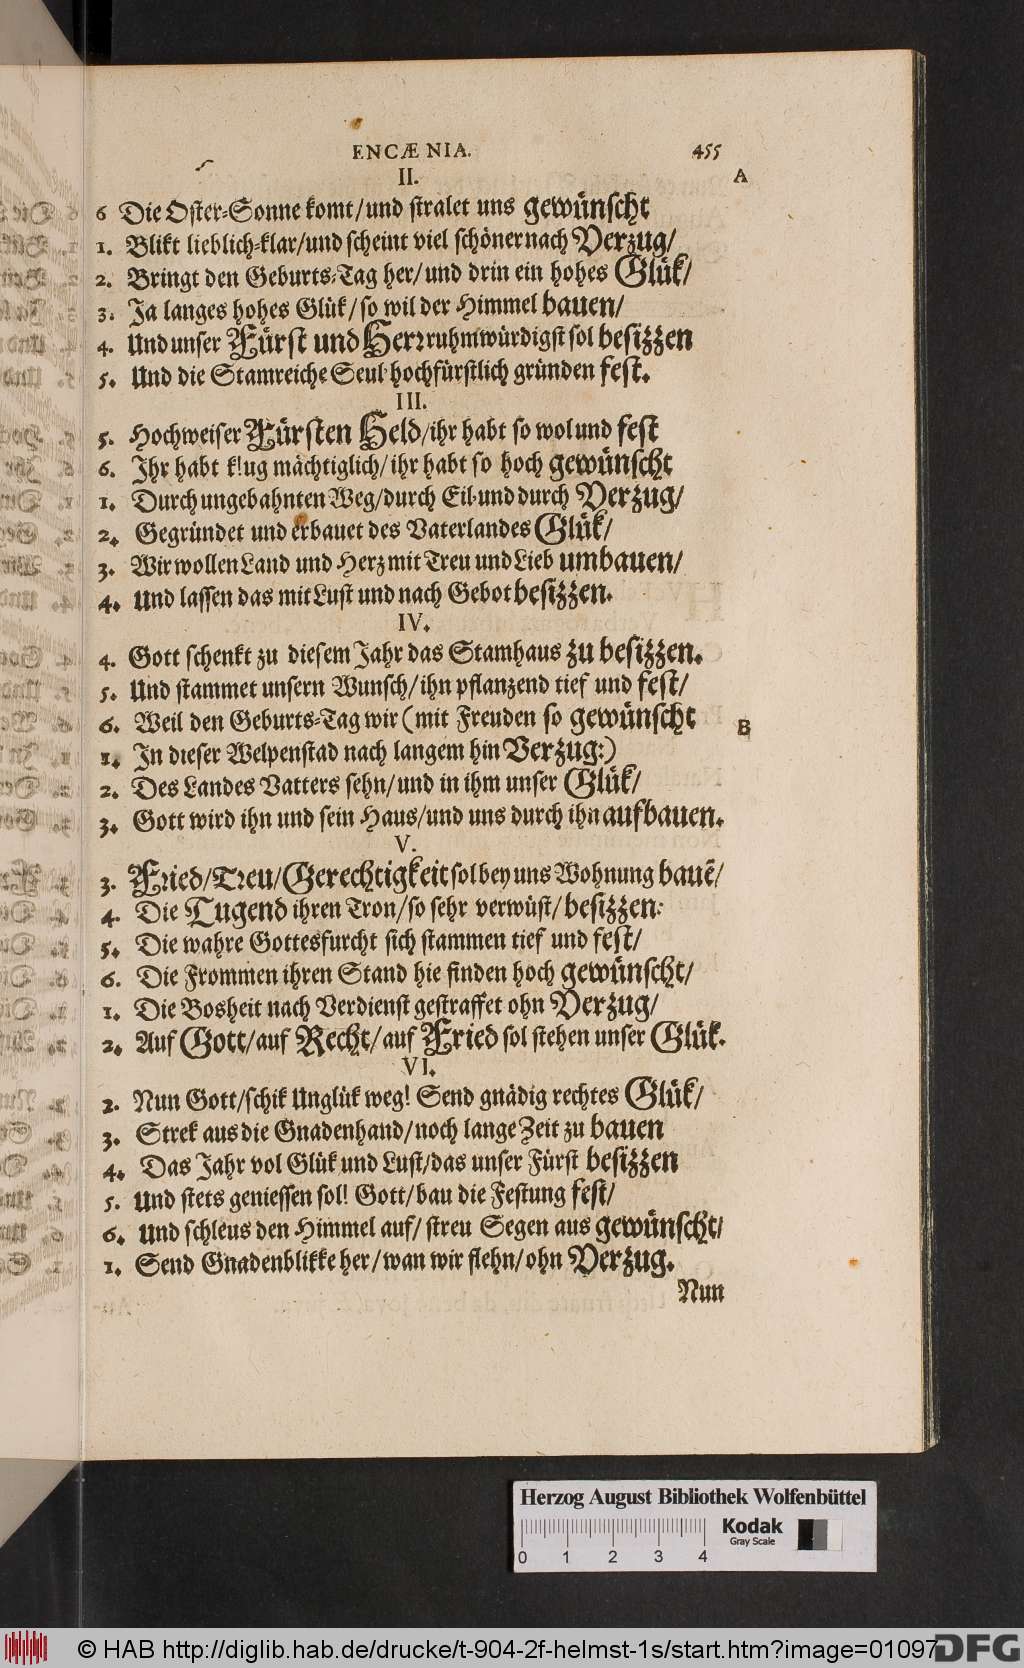 ENCÆNIA. 455
II.
A
6 Die Oster-Sonne komt/und stralet uns gewünscht
1. Blikt lieblich-klar/und scheint viel schöner nach Verzug/
2. Bringt den Geburts-Tag her/und drin ein hohes Glük/
3. Ja langes hohes Glük/so wil der Himmel bauen/
4. Und unser Fürst und Herr ruhmwürdigst sol besizzen
5. Und die Stamreiche Seul hochfürstlich gründen fest.
III.
5. Hochweiser Fürsten Held/ihr habt so wol und fest
6. Ihr habt klug mächtiglich/ihr habt so hoch gewünscht
1. Durch ungebahnten Weg/durch Eil und durch Verzug/
2. Gegründet und erbauet des Vaterlandes Glük/
3. Wir wollen Land und Herz mit Treu und Lieb umbauen/
4. Und lassen das mit Lust und nach Gebot besizzen.
IV.
4. Gott schenkt zu diesem Jahr das Stamhaus zu besizzen.
5. Und stammet unsern Wunsch/ihn pflanzend tief und fest/
6. Weil den Geburts-Tag wir (mit Freuden so gewünscht
B
1. In dieser Welpenstad nach langem hin Verzug:)
2. Des Landes Vatters sehn/und in ihm unser Glük/
3. Gott wird ihn und sein Haus/und uns durch ihn aufbauen.
V.
3. Fried/Treu/Gerechtigkeit sol bey uns Wohnung bauē/
4. Die Tugend ihren Tron/so sehr verwüst/besizzen:
5. Die wahre Gottesfurcht sich stammen tief und fest/
6. Die Frommen ihren Stand hie finden hoch gewünscht/
1. Die Bosheit nach Verdienst gestraffet ohn Verzug/
2. Auf Gott/auf Recht/auf Fried sol stehen unser Glük.
VI.
2. Nun Gott/schik Unglük weg! Send gnädig rechtes Glük/
3. Strek aus die Gnadenhand/noch lange Zeit zu bauen
4. Das Jahr vol Glük und Lust/das unser Fürst besizzen
5. Und stets geniessen sol! Gott/bau die Festung fest/
6. Und schleus den Himmel auf/streu Segen aus gewünscht/
1. Send Gnadenblikke her/wan wir flehn/ohn Verzug.
Nun
Herzog August Bibliothek Wolfenbüttel
Kodak
Gray Scale
0 1 2 3 4
© HAB http://diglib.hab.de/drucke/t-904-2f-helmst-1s/start.htm?image=01097
DFG